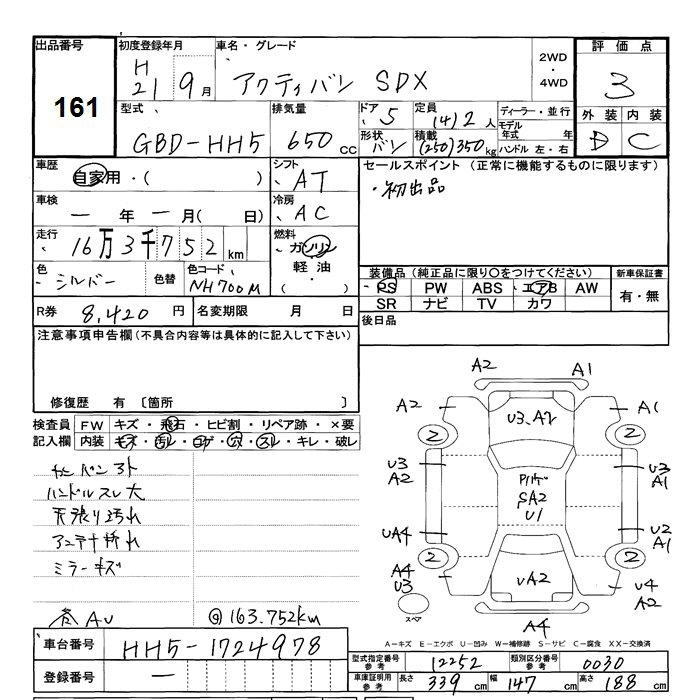 出品番号 初度登録年月 車名・グレード 評価点
161
H 21 9月 アクティバン SDX 2WD・4WD 3
型式 排気量 ドア 5 定員 (4)2人 ディーラー・並行 外装 内装
GBD-HH5 650cc 形状 バン 積載 (250)350kg モデル年式 年 D C
ハンドル 左・右
車歴 自家用・( ) シフト AT セールスポイント (正常に機能するものに限ります)
車検 ー年ー月( 日) 冷房 AC ・初出品
走行 16万3千752km 燃料 ガソリン
色 シルバー 色替 色コード NH700M 軽油・( ) 装備品(純正品に限り○をつけてください) 新車保証書
PS PW ABS エアB AW 有・無
SR ナビ TV カワ
R券 8,420円 名変期限 月 日 後日品
注意事項申告欄(不具合内容等は具体的に記入して下さい)
修復歴 有 〔箇所 〕
検査員 FW キズ・飛石・ヒビ割・リペア跡・×要
記入欄 内装 キズ・汚レ・コゲ・穴・スレ・キレ・破レ
ハンドルスレ大
天張り汚れ
アンテナ折れ
ミラーキズ
@163.752km
A2 A1
A2 U3、A2 A1
2 2
U3 A2 U3 A1
SA2
U1
UA4 U2 A1
2 2
A4 U3 UA2 U4 A2
スペア
A4
A-キズ E-エクボ U-凹み W-補修跡 S-サビ C-腐食 XX-交換済
車台番号 HH5-1724978
登録番号 ー
型式指定番号 参考 12252 類別区分番号 参考 0030
車庫証明用 参考 長さ 339cm 幅 147cm 高さ 188cm